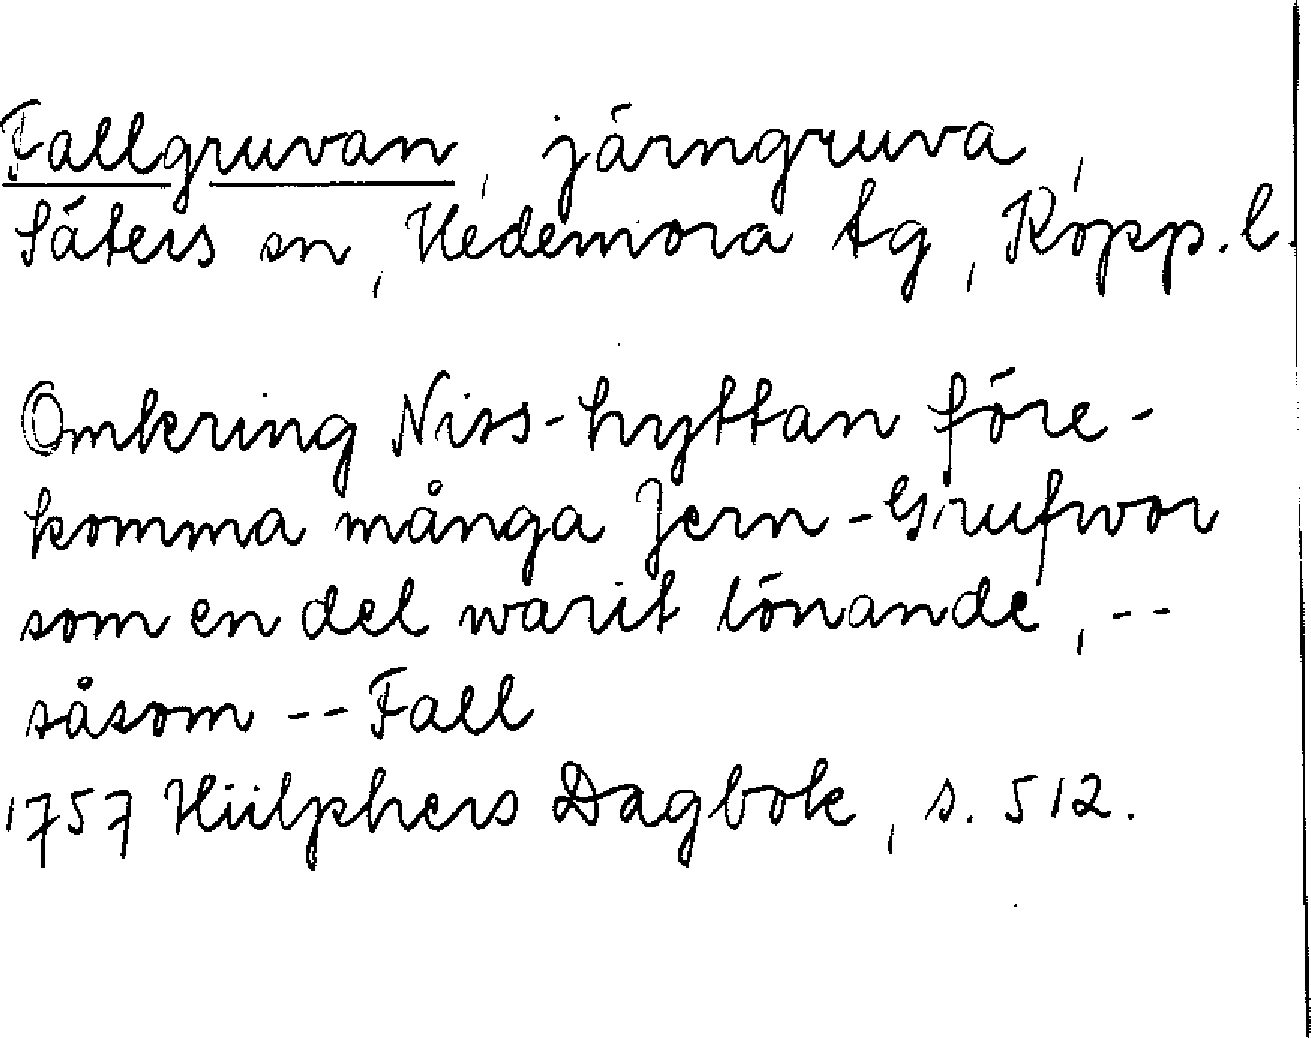 Fallgruvan, järngruva,
Säters sn, Hedemora tg, Kopp. l.
Omkring Niss-hyttan före-
komma många Jern-Grufwor
som en del warit lönande, --
såsom -- Fall
1757 Hülphers Dagbok, s. 512.